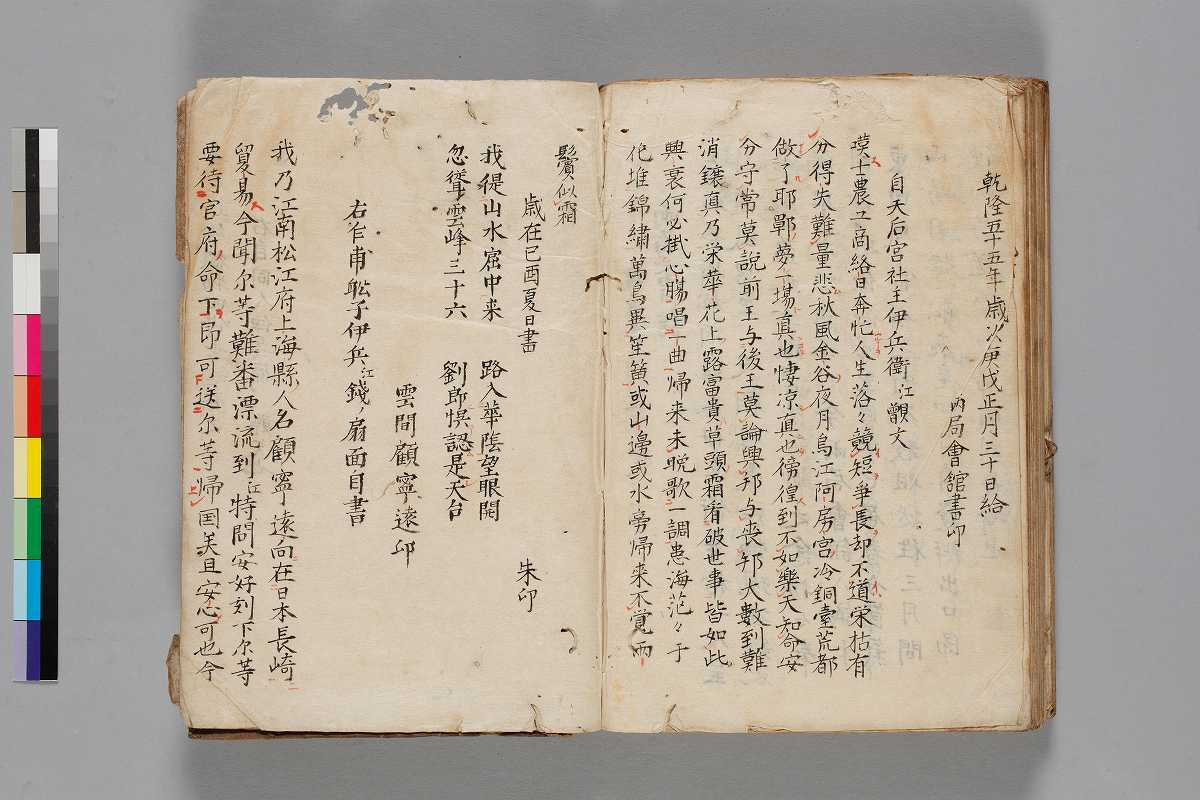 乾隆五十五年歳次庚戌正月三十日給
内局會舘書印
自天后宮社主伊兵衛江覿文
嘆士農工商絡日奔忙人生落々競短爭長却不道栄枯有
分得失難量悲秋風金谷夜月烏江阿房宮冷銅臺荒都
做了耶鄲夢一場真也悽凉真也徬徨到不如樂天知命安
分守常莫說前王与後王莫論興邦与喪邦大數到難
消鑲真乃栄華花上露富貴草頭霜看破世事皆如此
興衰何必掛心腸唱一曲帰来未晩歌一調患海茫々于
花堆錦繡萬鳥異笙簧或山邊或水旁帰来不覚両
鬢似霜
歳在已酉夏日書
朱印
我従山水窟中来　路入華陰望眼開
忽聳雲峰三十六　劉郎悞認是天台
雲間顧寧遠印
右乍甫舩手伊兵江錢ノ扇面自書
我乃江南松江府上海縣人名顧寧遠向在日本長崎
貿易今聞尓等難番漂流到江特問安好刻下尓等
要待官府命下即可送尓等帰国美且安心可也今